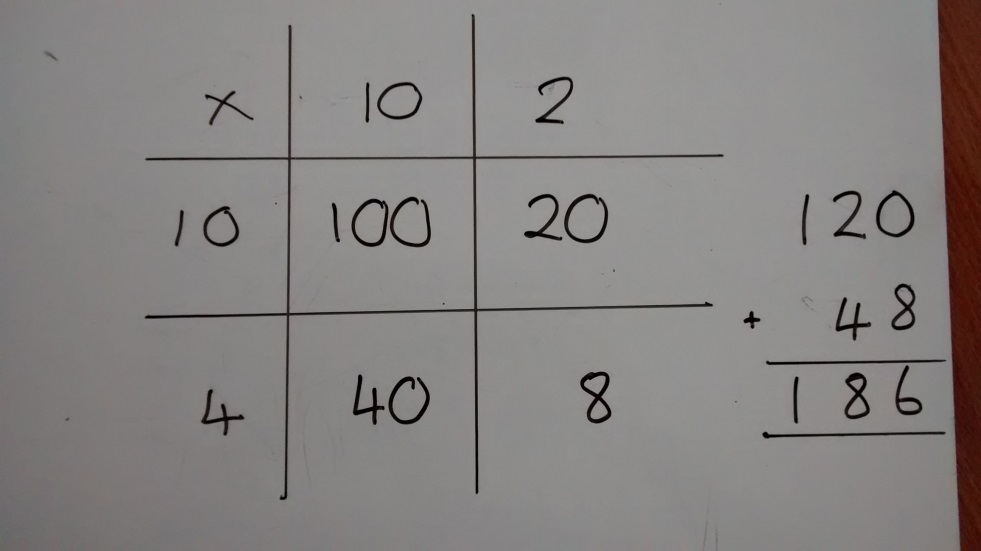 × 10 2
10 100 20
4 40 8
120
+ 48
186